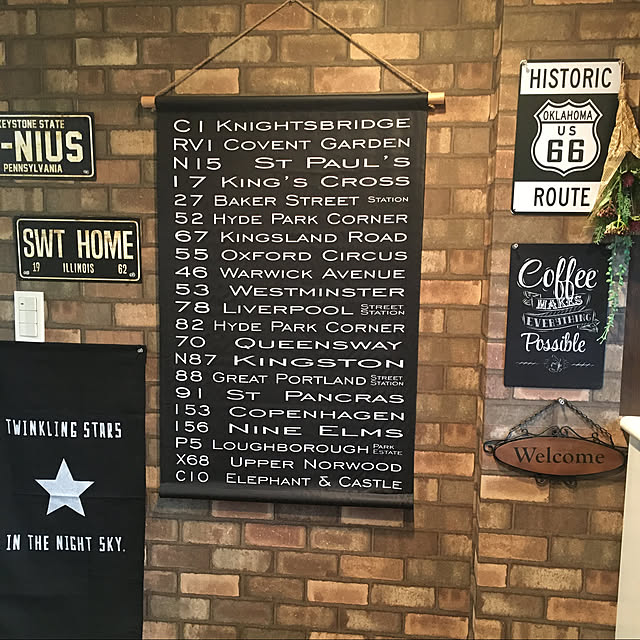 KEYSTONE STATE
-NIUS
PENNSYLVANIA
SWT HOME
19 ILLINOIS 62
TWINKLING STARS
IN THE NIGHT SKY.
C1 KNIGHTSBRIDGE
RV1 COVENT GARDEN
N15 ST PAUL'S
17 KING'S CROSS
27 BAKER STREET STATION
52 HYDE PARK CORNER
67 KINGSLAND ROAD
55 OXFORD CIRCUS
46 WARWICK AVENUE
53 WESTMINSTER
78 LIVERPOOL STREET STATION
82 HYDE PARK CORNER
70 QUEENSWAY
N87 KINGSTON
88 GREAT PORTLAND STREET STATION
91 ST PANCRAS
153 COPENHAGEN
156 NINE ELMS
P5 LOUGHBOROUGH PARK ESTATE
X68 UPPER NORWOOD
C10 ELEPHANT & CASTLE
HISTORIC
OKLAHOMA
US
66
ROUTE
Coffee
MAKES
EVERYTHING
Possible
Welcome